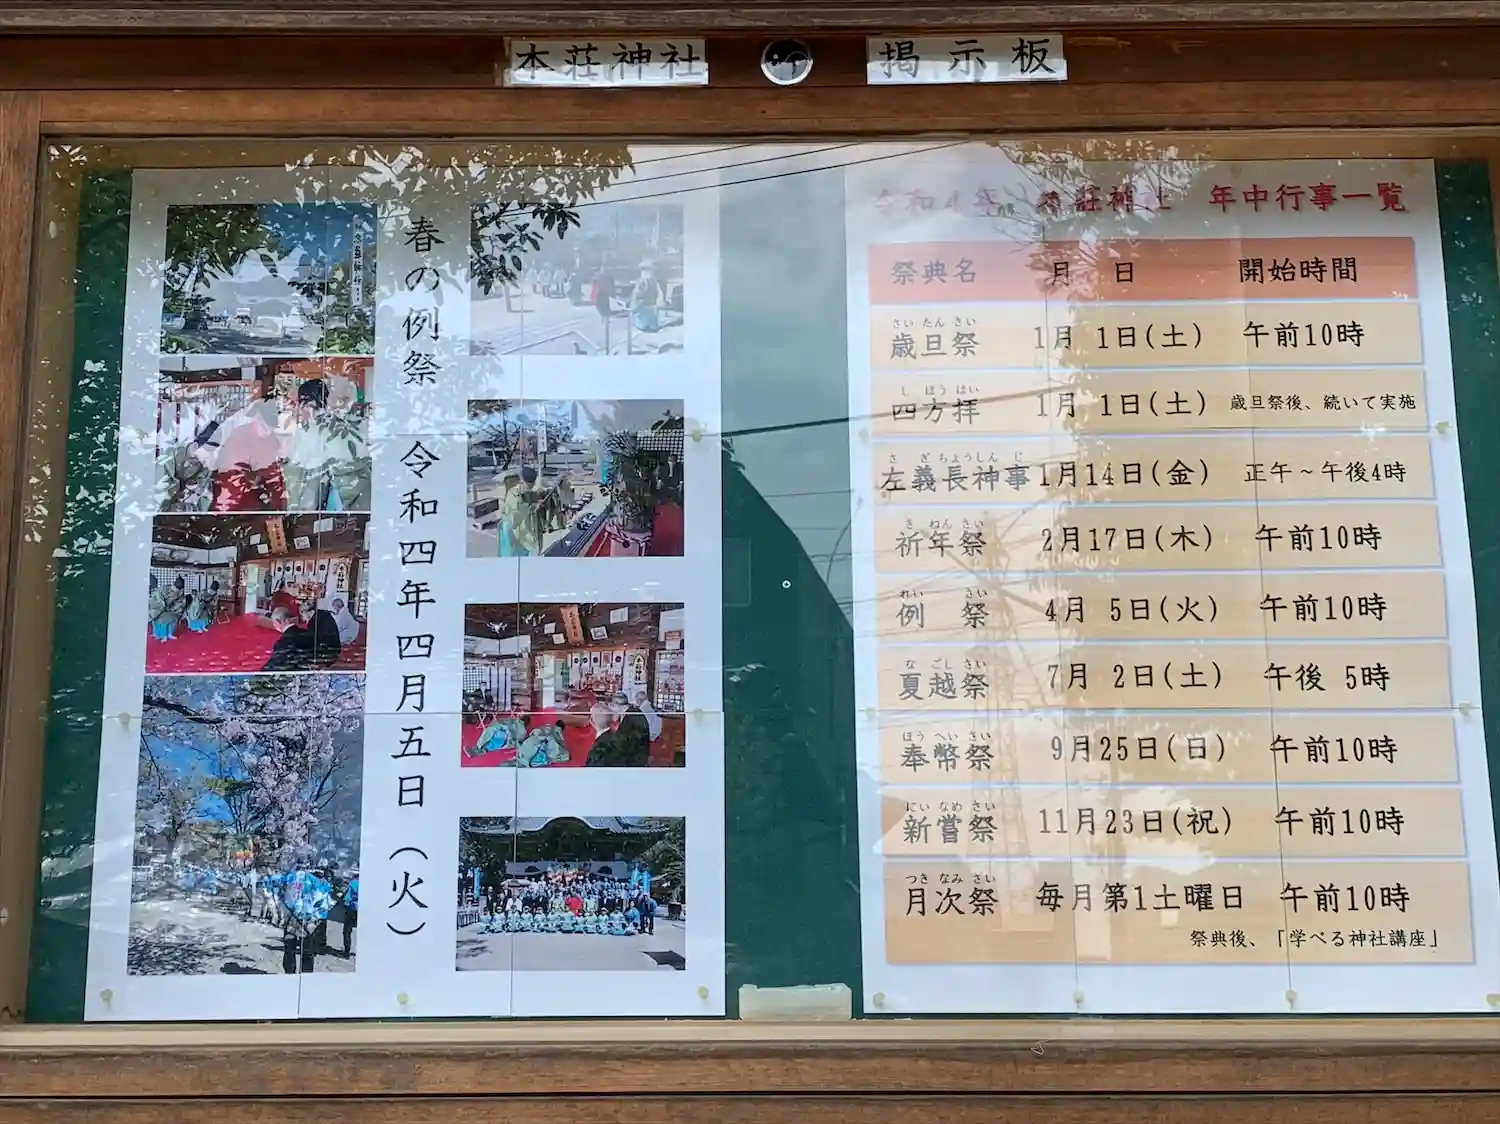 本荘神社 掲示板
春の例祭 令和四年四月五日（火）
令和4年 本荘神社 年中行事一覧
祭典名 月 日 開始時間
さい たん さい
歳旦祭 1月 1日(土) 午前10時
し ほう はい
四方拝 1月 1日(土) 歳旦祭後、続いて実施
さ ぎ ちょう しん じ
左義長神事 1月14日(金) 正午～午後4時
き ねん さい
祈年祭 2月17日(木) 午前10時
れい さい
例 祭 4月 5日(火) 午前10時
な ごし さい
夏越祭 7月 2日(土) 午後 5時
ほう へい さい
奉幣祭 9月25日(日) 午前10時
にい なめ さい
新嘗祭 11月23日(祝) 午前10時
つき なみ さい
月次祭 毎月第1土曜日 午前10時
祭典後、「学べる神社講座」